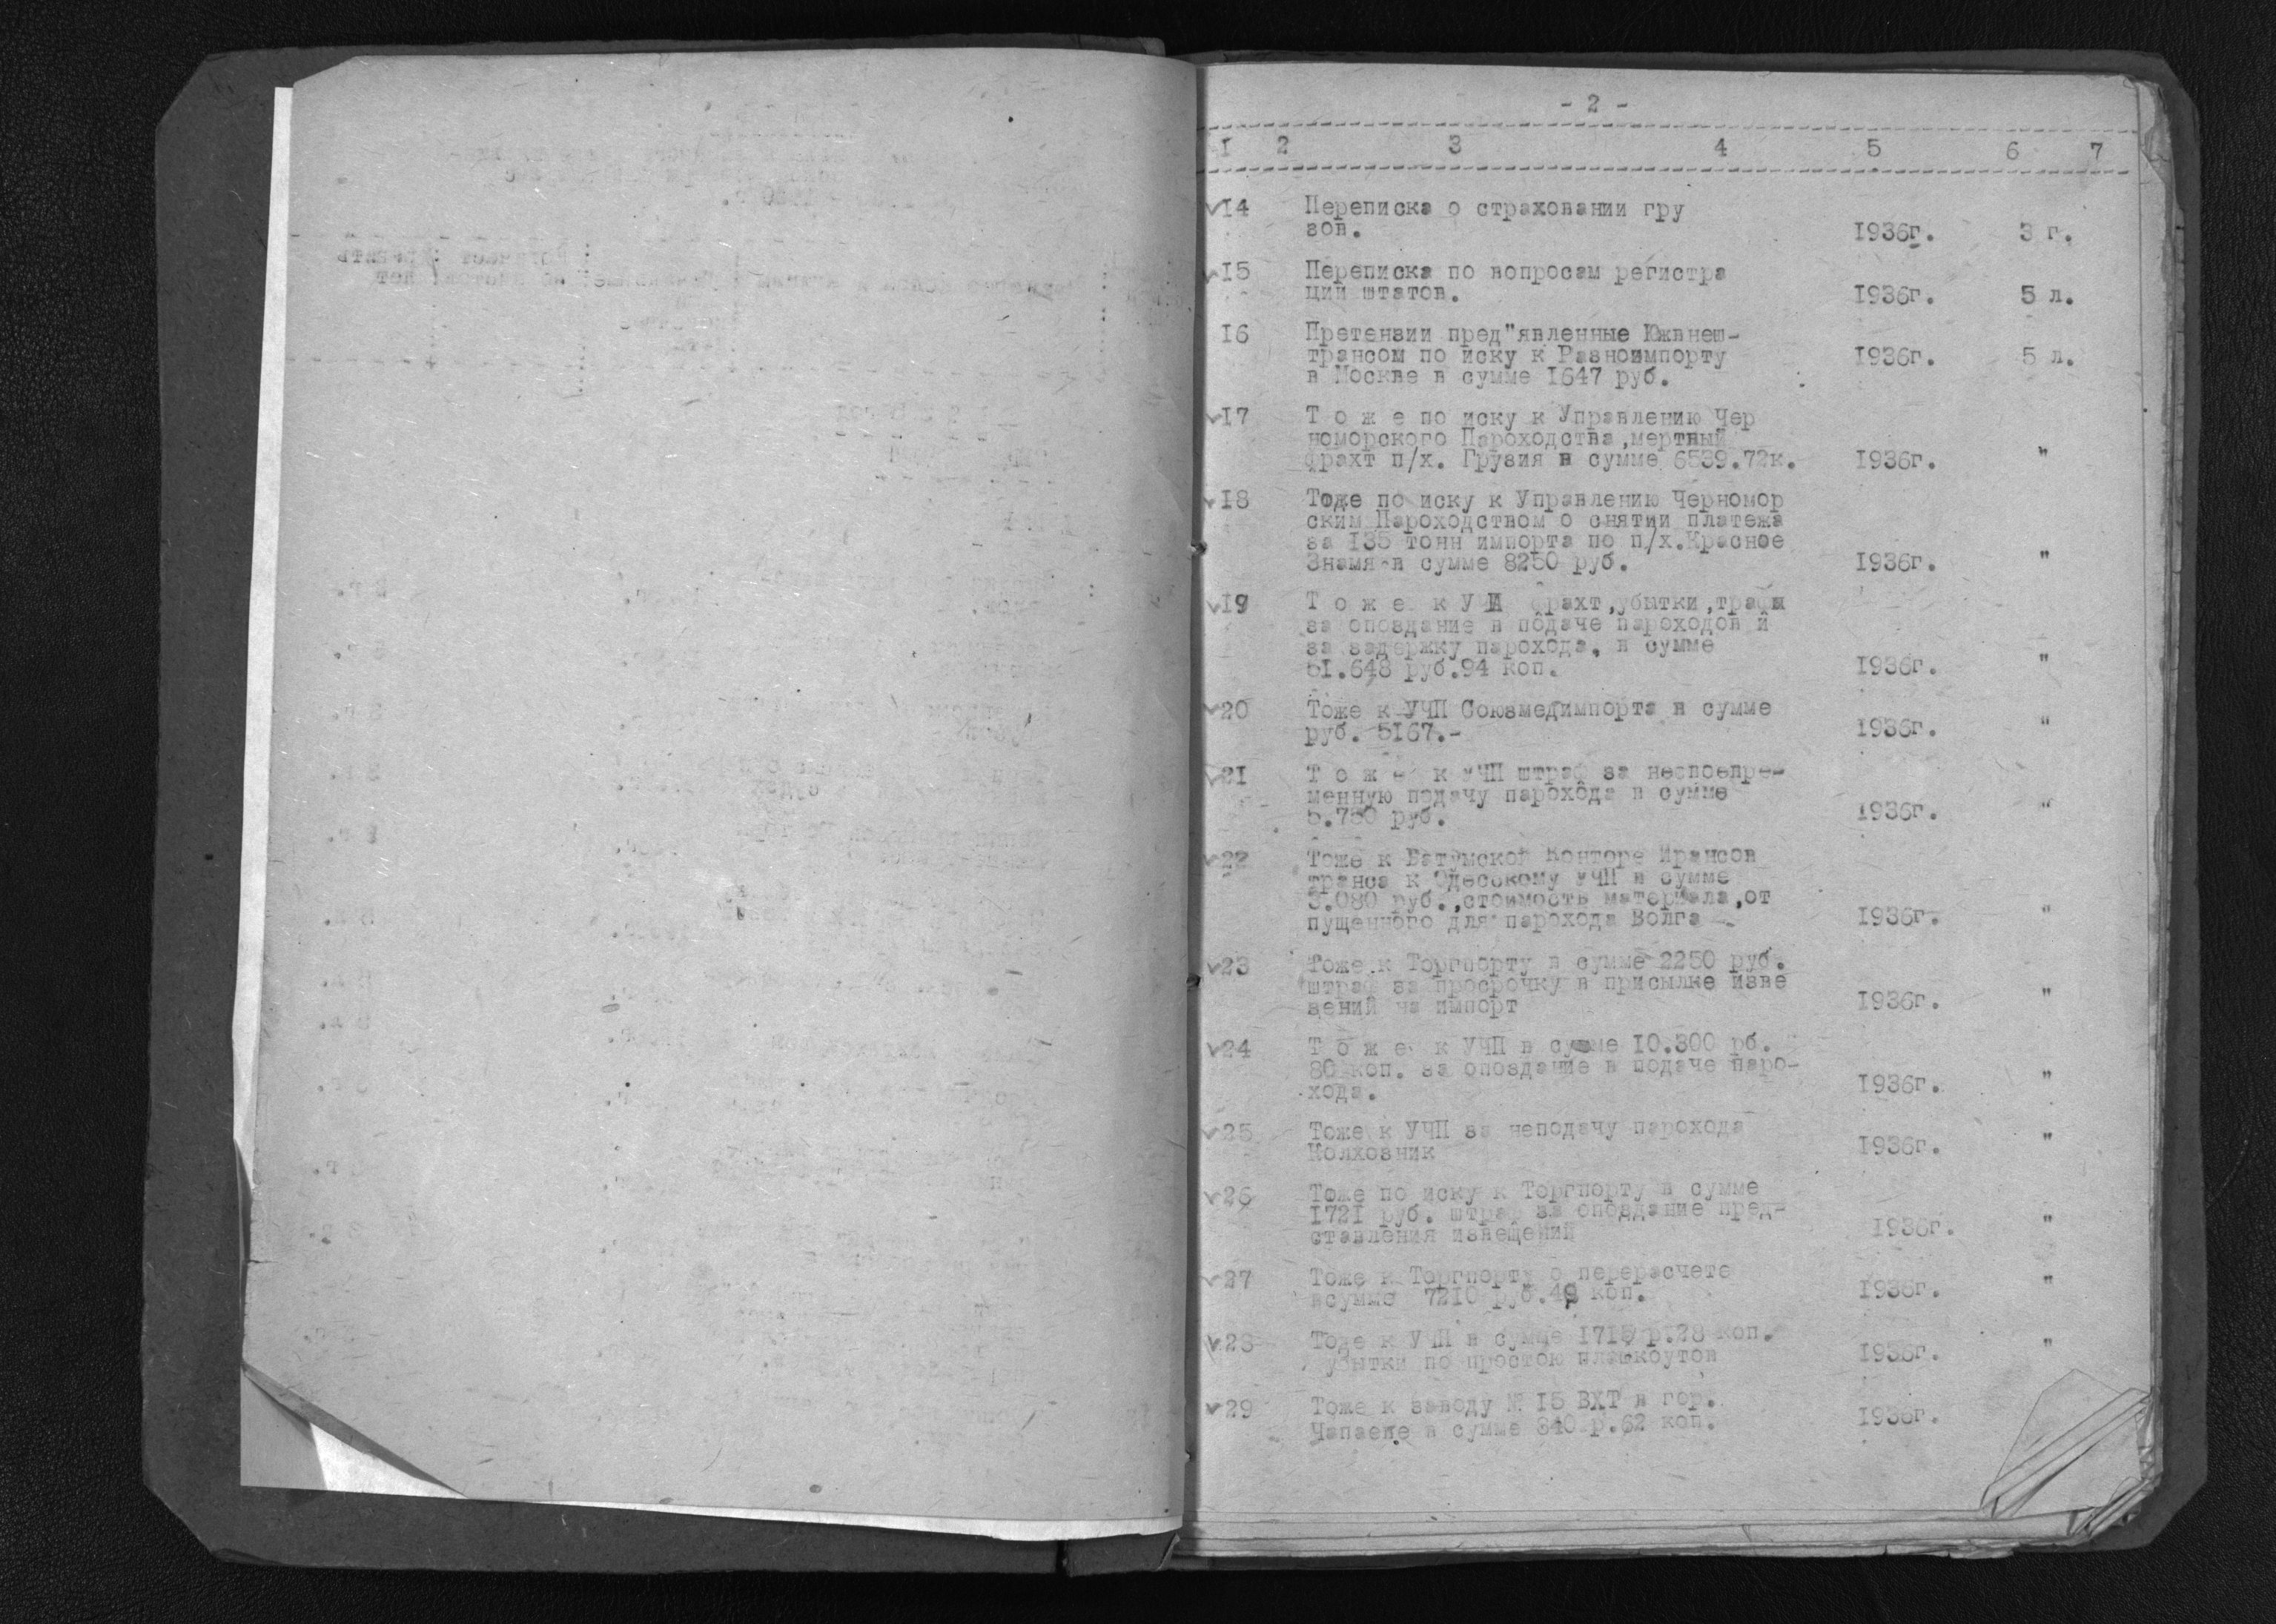 - 2 -
I 2 3 4 5 6 7
14 Переписка о страховании гру
зов. 1936г. 3 г.
15 Переписка по вопросам регистра
ции штатов. 1936г. 5 л.
16 Претензии пред"явленные Южвнеш-
трансом по иску к Разноимпорту 1936г. 5 л.
в Москве в сумме 1647 руб.
17 Т о ж е по иску к Управлению Чер
номорского Пароходства,мертвый
фрахт п/х. Грузия в сумме 6539.72к. 1936г. "
18 Тоже по иску к Управлению Черномор
ским Пароходством о снятии платежа
за 135 тонн импорта по п/х.Красное
Знамя в сумме 8250 руб. 1936г. "
19 Т о ж е к фрахт,убытки,
за опоздание в подаче пароходов и
за задержку парохода, в сумме
51.648 руб.94 коп. 1936г. "
20 Тоже к УЧП Союзмедимпорта в сумме
руб. 5167.- 1936г. "
21 Т о ж е к УЧП штраф за
менную подачу парохода в сумме
5.750 руб. 1936г. "
22 Тоже к Батумской Конторе Ирансов
транса к Одесскому УЧП в сумме
3.080 руб.,стоимость материала,от
пущенного для парохода Волга 1936г. "
23 Тоже к Торгпорту в сумме 2250 руб.
штраф за просрочку в присылке изве
щений на импорт 1936г. "
24 Т о ж е к УЧП в сумме 10.300 рб.
80 коп. за опоздание в подаче паро-
хода. 1936г. "
25 Тоже к УЧП за неподачу парохода
Колхозник 1936г. "
26 Тоже по иску к Торгпорту в сумме
1721 руб. штраф за опоздание пред-
ставления извещений 1936г. "
27 Тоже к Торгпорту о перерасчете
в сумме 7210 руб. коп. 1936г. "
28 Тоже к УЧП в сумме 1715 р.28 коп.
убытки по простою плашкоутов 1936г. "
29 Тоже к заводу № 15 ВХТ в гор.
Чапаеве в сумме 340 р.62 коп. 1936г.